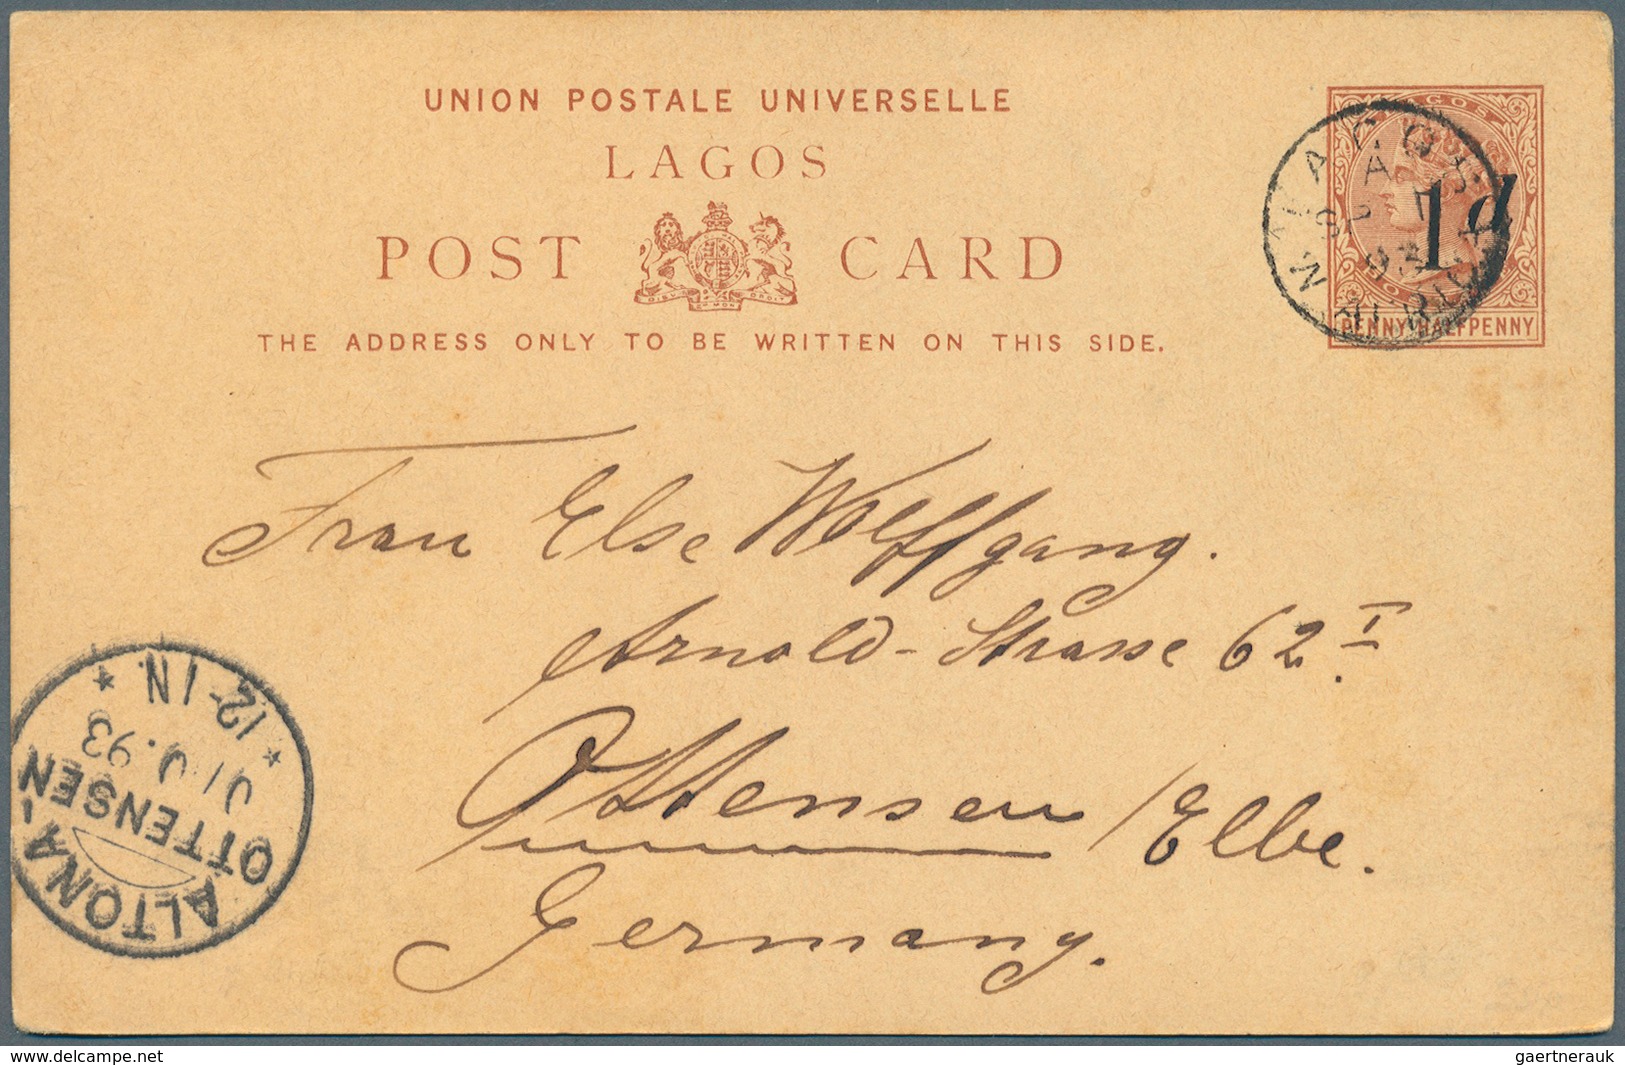 UNION POSTALE UNIVERSELLE
LAGOS
POST CARD
DIEU ET MON DROIT
THE ADDRESS ONLY TO BE WRITTEN ON THIS SIDE.
LAGOS
1d
PENNY HALFPENNY
LAGOS
A
93
Frau Else Wolffgang.
Arnold-Strasse 62 I.
Ottensen/Elbe.
Germany.
ALTONA-
OTTENSEN
93
12-1N
delcampe.net
gaertnerauk